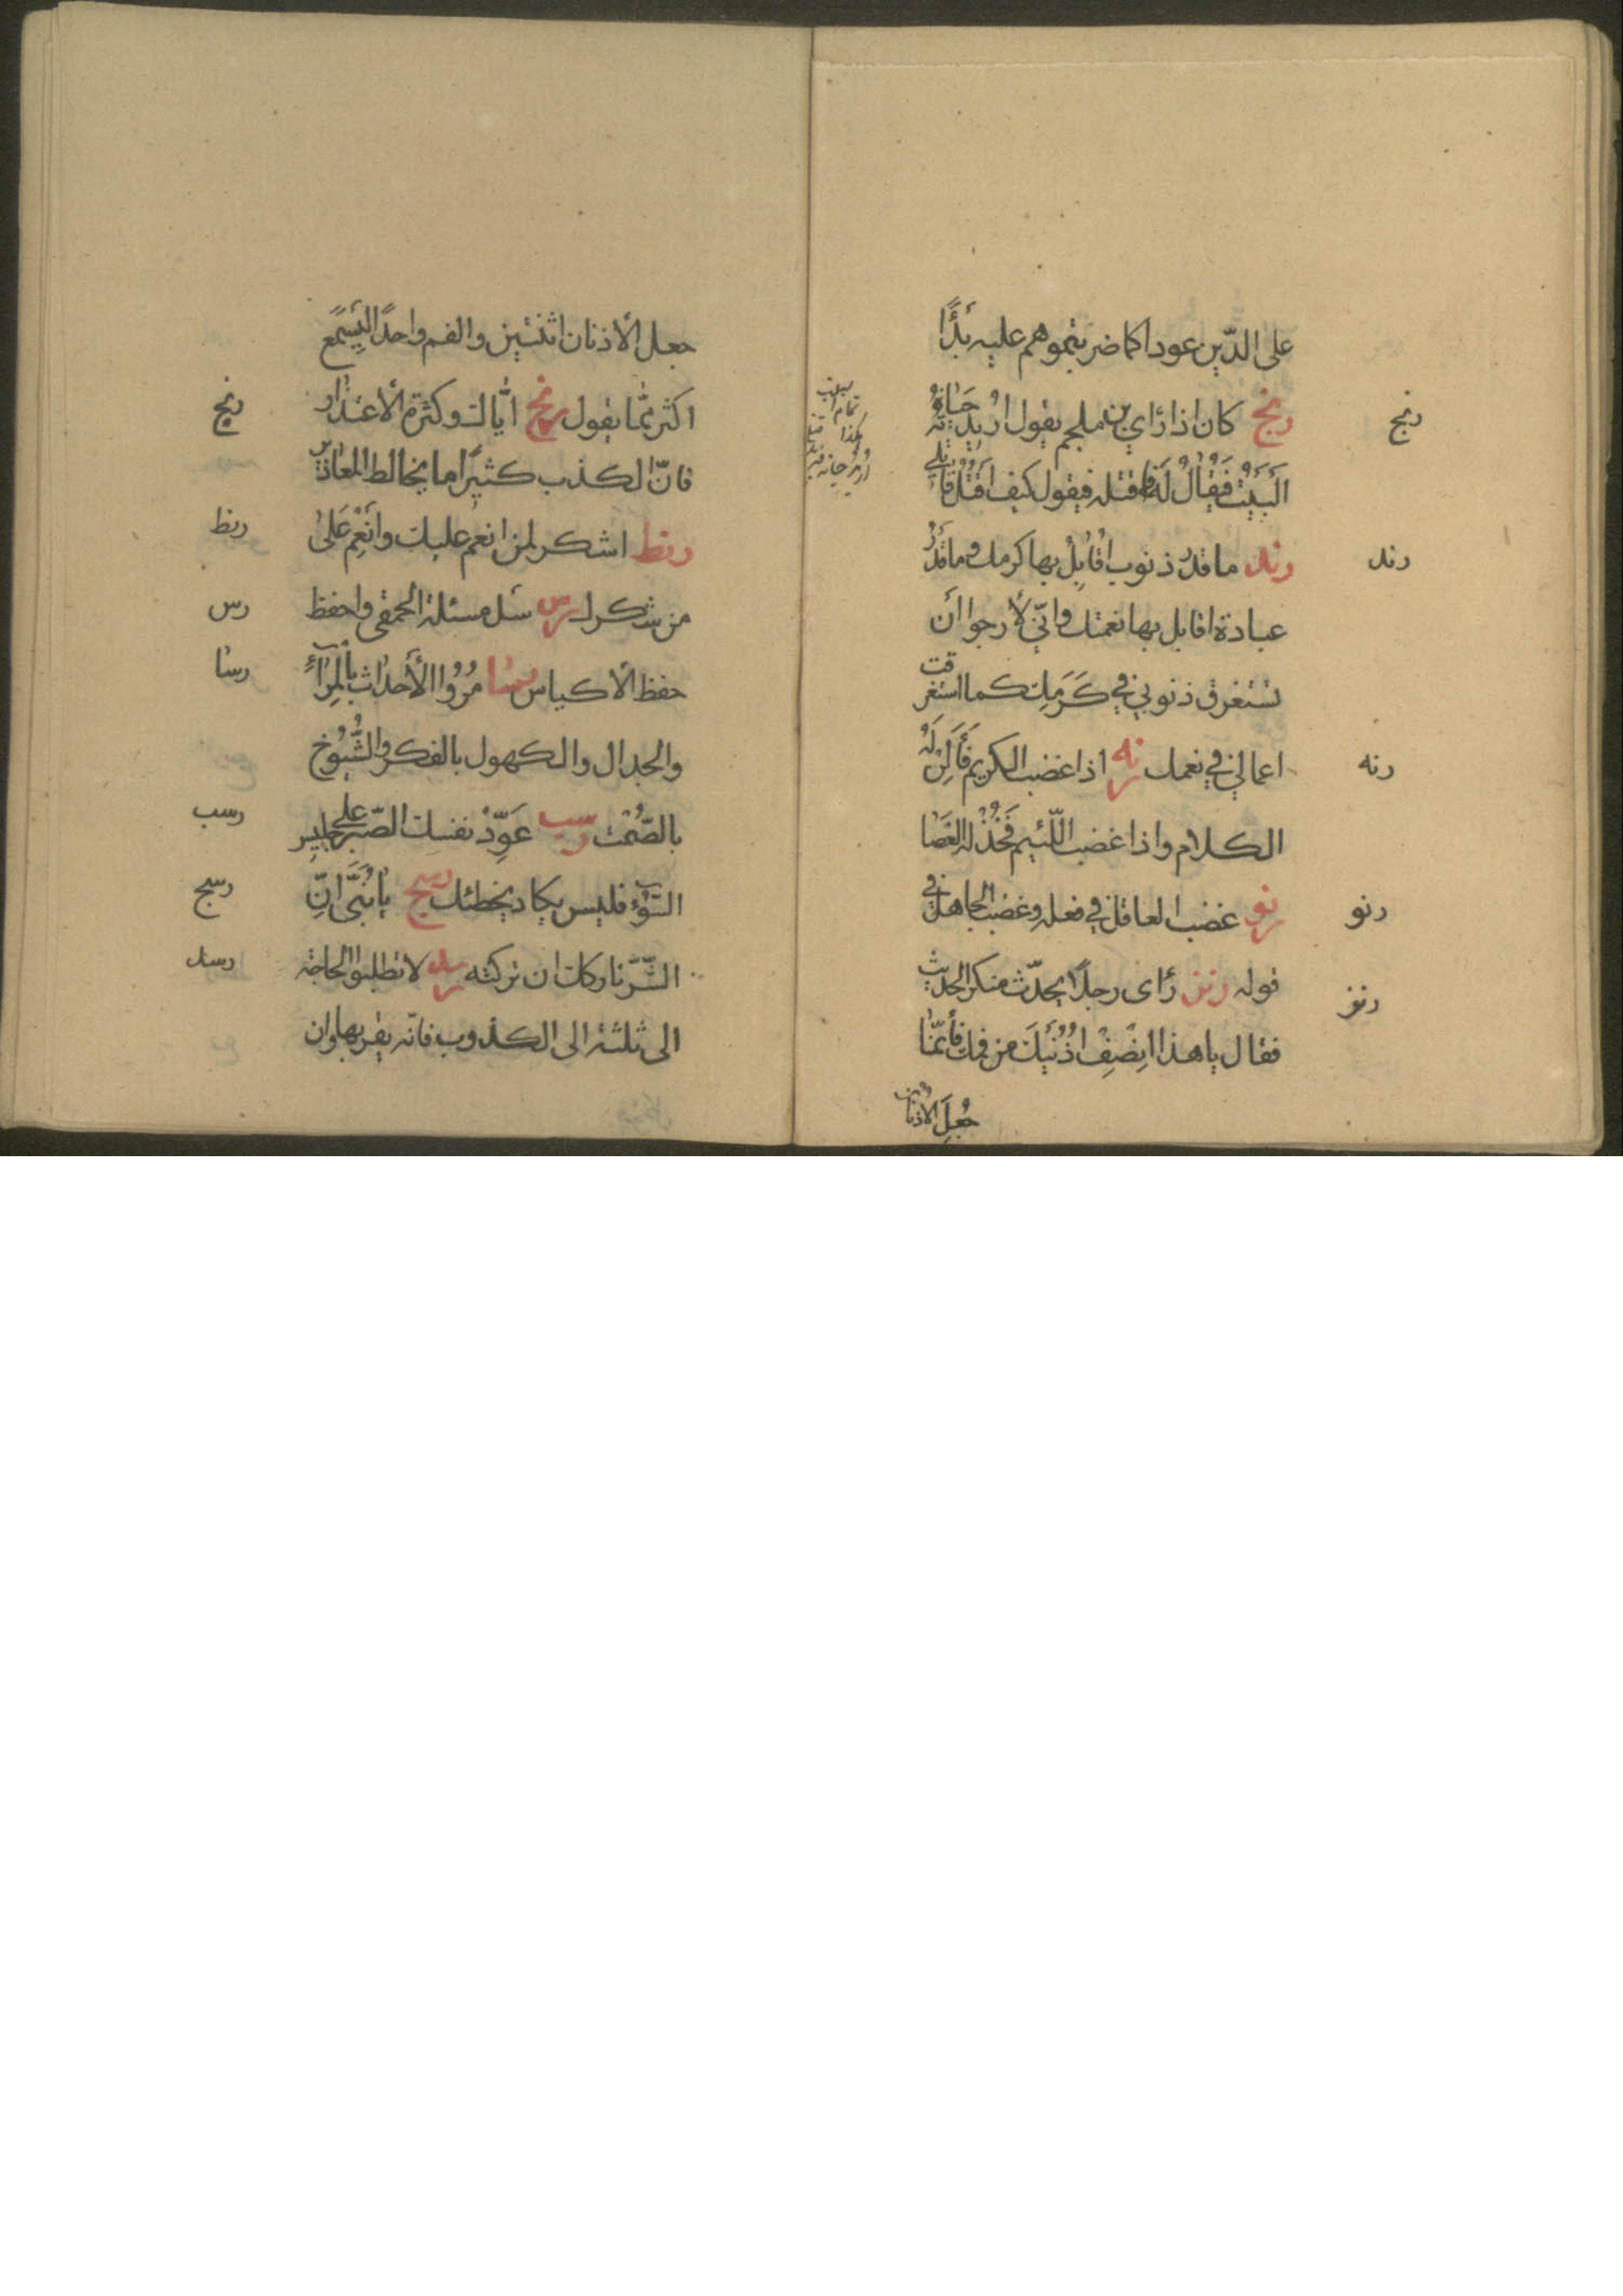 على الدّين عودا كما ضربتموهم عليه بدًّا
رنج كان اذا رَاي بن ملجم يقول اُرِيدُ حَيَاتَهُ
رنج
اَلْبَيْتَ فَيُقالُ لَهُ فاقتله فيقول كيف اَقْتُلُ قاتلي
رند ما قدرُ ذنوب اُقابِلُ بها كرمك وما قَدْرُ
رند
عبادة اقابل بها نعمتك وانّي لأرجوا أن
تستغرق ذنوبي في كَرَمِك كما استغرقت
اعمالي في نعمك رنه اذا غضب الكريم فَأَلِنْ لَهُ
رنه
الكلام واذا غضب اللّئيم فَخُذْ له العَصَا
رنو غضب العاقل في فعله وغضب الجاهل في
رنو
قوله رنز رَاى رجلًا يحدّث منكر الحديث
رنز
فقال ياهذا اِنصِفْ اُذُنَيْكَ من فمك فأنّما
جُعِلَ الأذنان
جعل الأذنان اثنتين والفم واحدًا لِيَسْمَع
اكثر ممّا يقول رنح ايّاك وكثرة الأعتذار
رنح
فانّ الكذب كثيرًا ما يخالط المعاذير
رنط اشكر لمن انعم عليك وانْعِم عَلىٰ
رنط
من شكرك رس سَل مسئلة الحمقى واحفظ
رس
حفظ الأكياس رسا مُرُوا الأحداث بالمِرَاءِ
رسا
والجدال والكهول بالفكر والشُّيُوخ
بالصّمْت رسب عَوِّدْ نفسك الصّبر على جليس
رسب
السّوْء فليس يكاد يخطئك رسج يابُنَيَّ انّ
رسج
الشّرّ تاركك ان تركته رسد لا تطلبوا الحاجة
رسد
الى ثلثة الى الكذوب فانّه يقرّبها وان